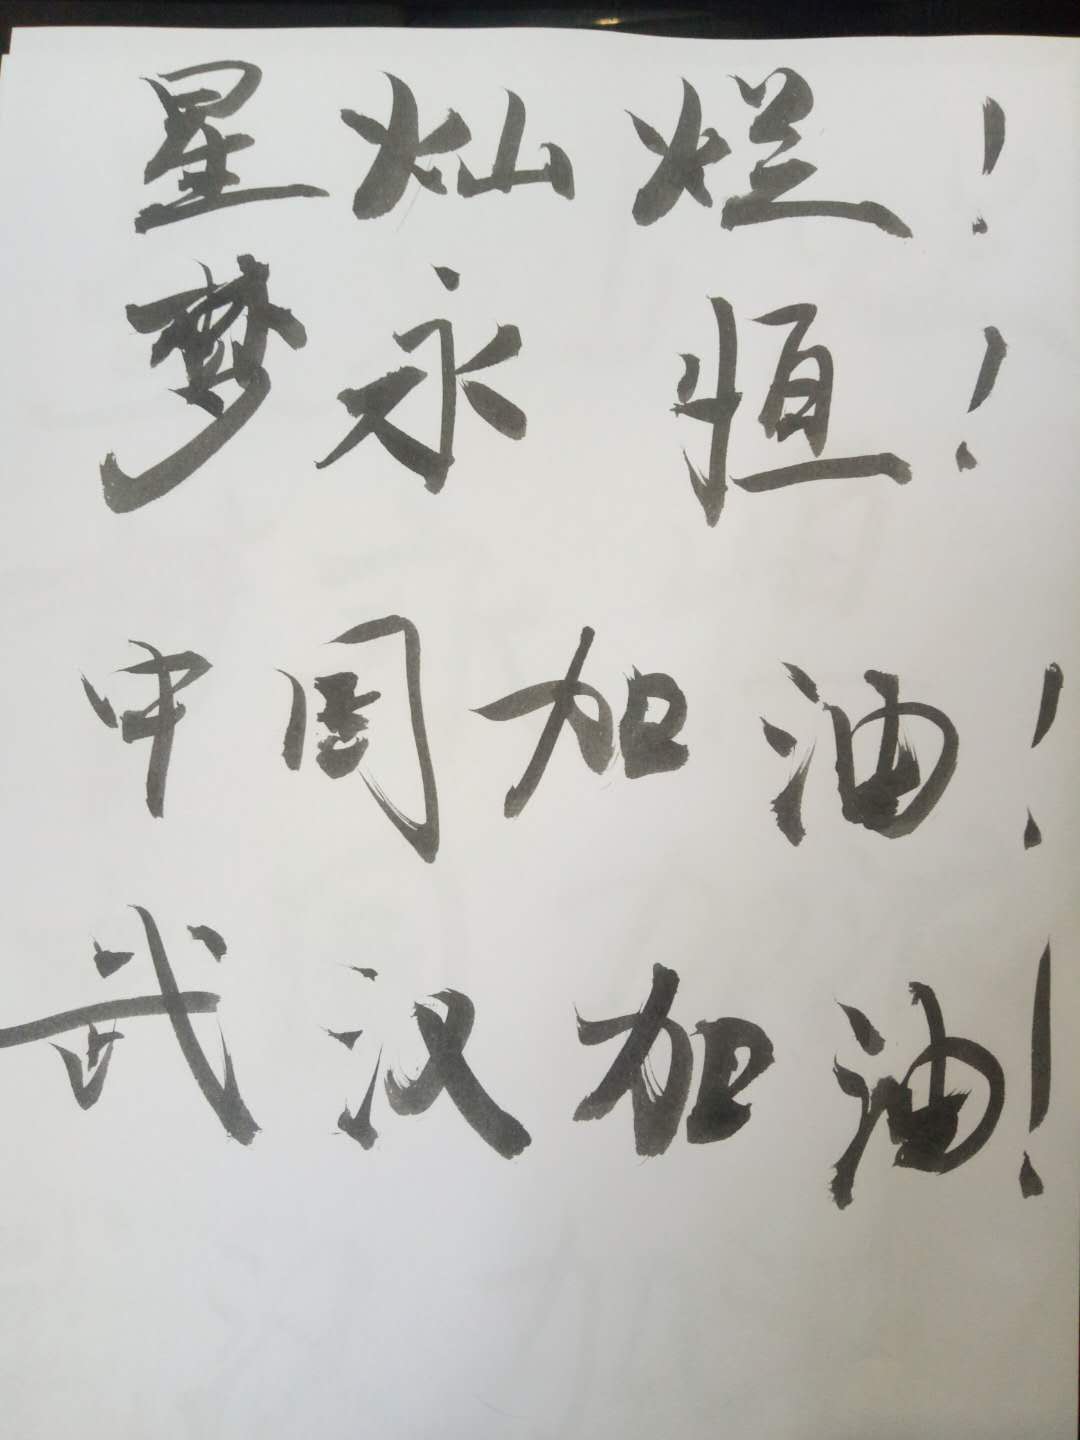 星灿烂！
梦永恒！
中国加油！
武汉加油！